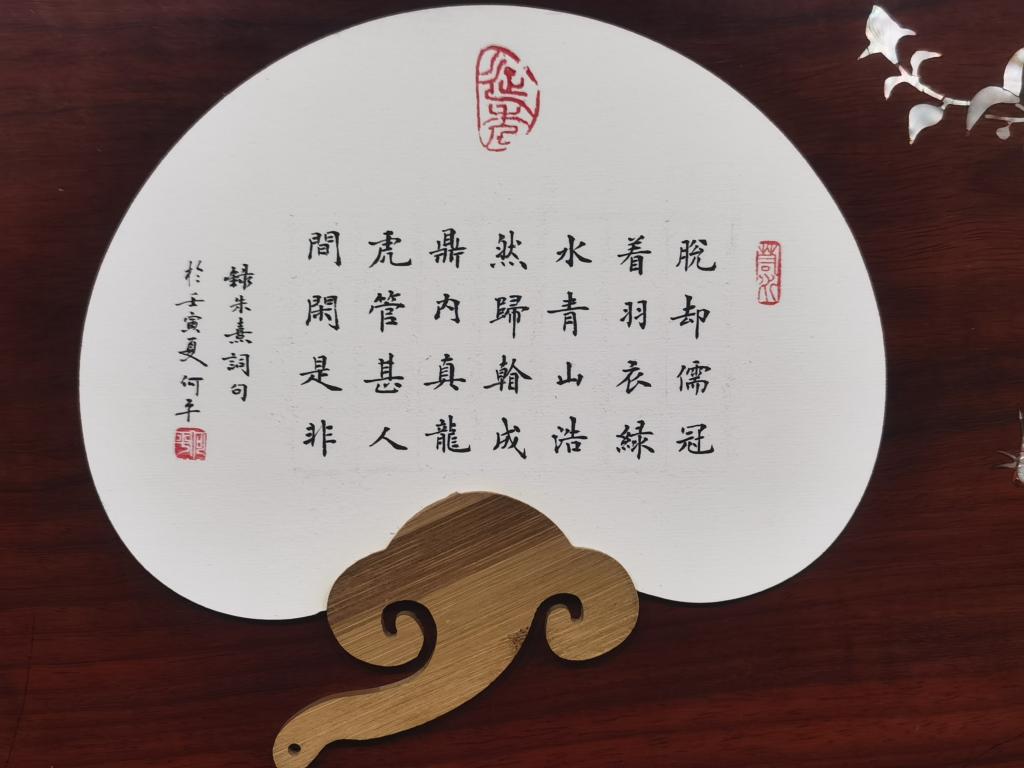 脫却儒冠
着羽衣綠
水青山浩
然歸成
鼎内真龍
虎管甚人
間閑是非
録朱熹詞句
於壬寅夏何平